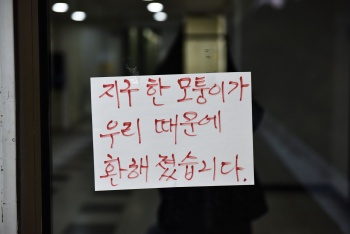 지구 한 모퉁이가
우리 때문에
환해 졌습니다.